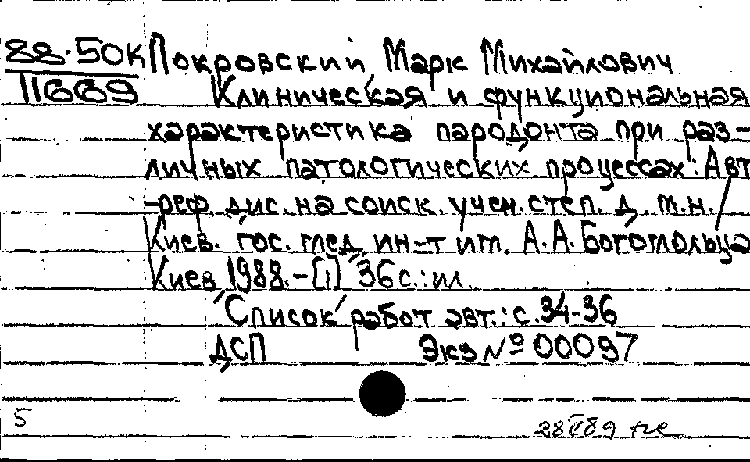 88-50К Покровский Марк Михайлович
11669 Клиническая и функциональная
характеристика пародонта при раз-
личных патологических процессах: Авт
-реф. дис. на соиск. учен. степ. д. м.н. /
Киев. гос. мед. ин-т им. А.А. Богомольца
Киев, 1988. - [1] 36 с.: ил.
"Список" работ авт.: с. 34-36
ДСП Экз № 00097
5